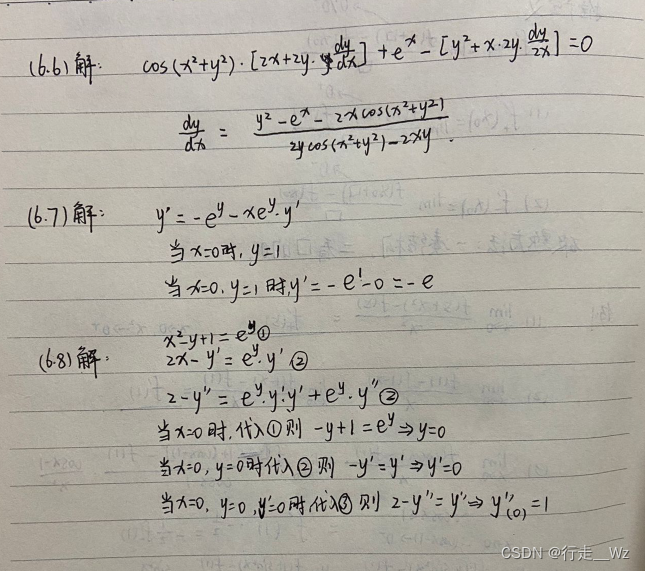 (6.6)解: cos(x²+y²)·[2x+2y·dy/dx]+eˣ-[y²+x·2y·dy/2x]=0
dy/dx = (y²-eˣ-2xcos(x²+y²))/(2ycos(x²+y²)-2xy).
(6.7)解: y'=-e^y-xe^y·y'
当x=0时,y=1
当x=0,y=1时,y'=-e¹-0=-e
x²-y+1=e^y①
(6.8)解: 2x-y'=e^y·y' ②
2-y''=e^y·y'·y'+e^y·y''②
当x=0时,代入①则 -y+1=e^y⇒y=0
当x=0,y=0时代入②则 -y'=y'⇒y'=0
当x=0,y=0,y'=0时代入③则 2-y''=y''⇒y''(0)=1
CSDN @行走__Wz